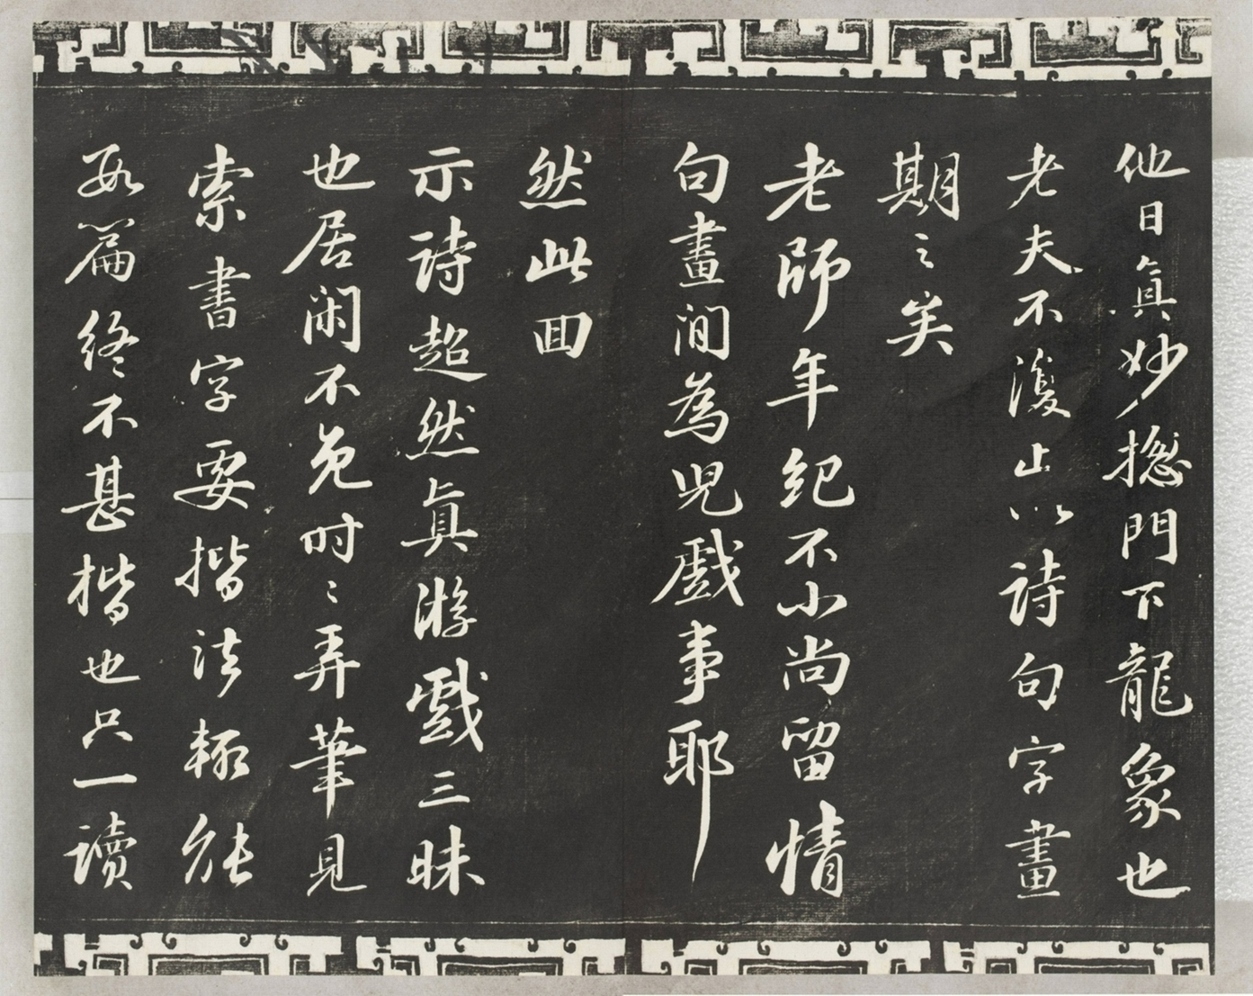 他日真妙揔門下龍象也
老夫不復止以詩句字畫
期之矣
老師年紀不小尚留情
句畫間為兒戲事耶
然此囬
示詩超然真游戲三昧
也居閑不免時〻弄筆見
索書字要揩法輙能
數篇終不甚楷也只一讀